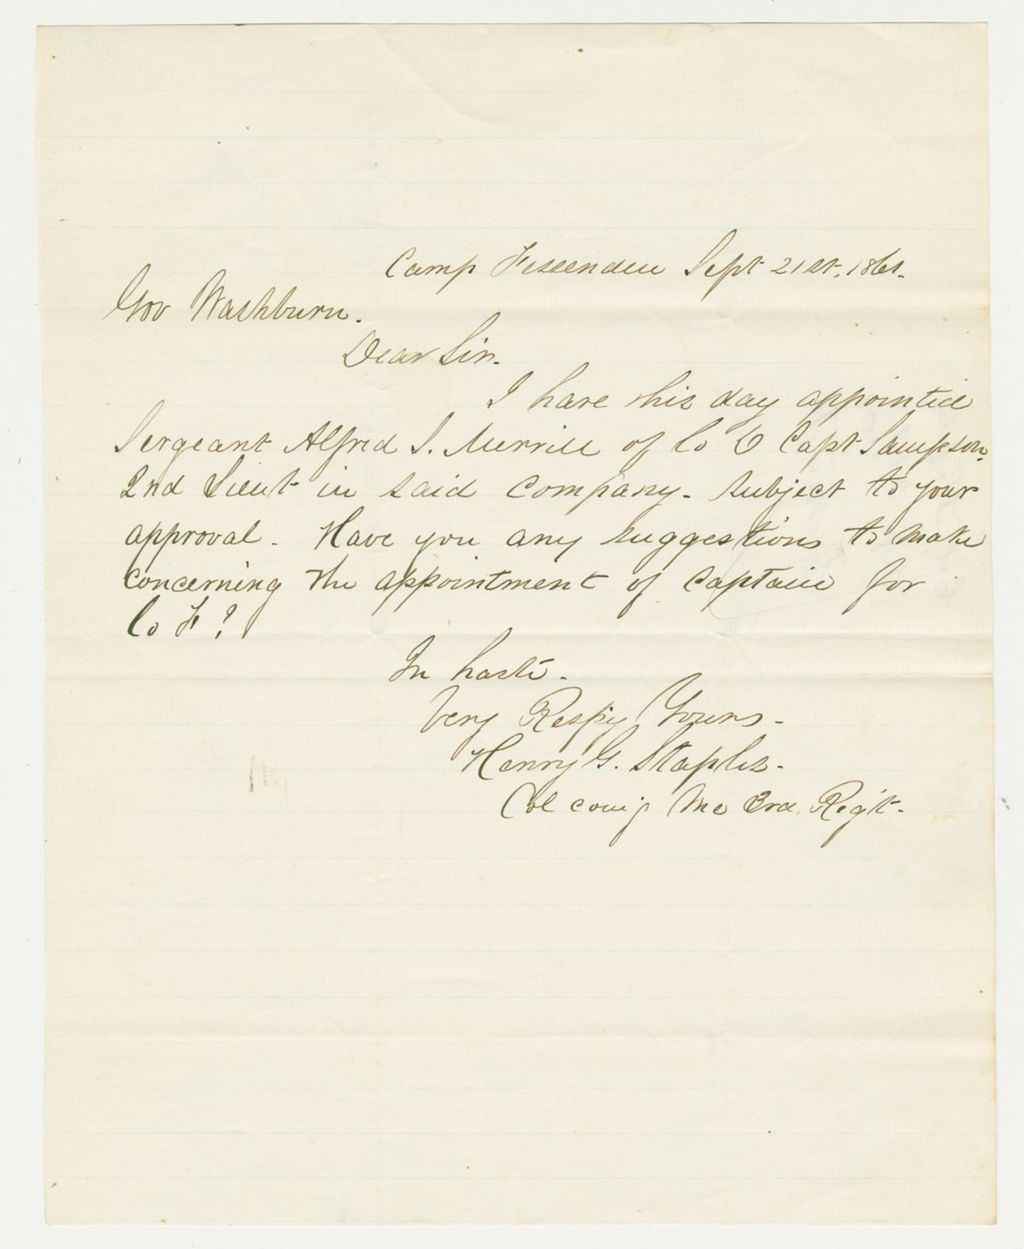 Camp Fessenden Sept 21st. 1861.
Gov Washburn.
Dear Sir.
I have this day appointed
Sergeant Alfred S. Merrill of Co D Capt Sampson,
2nd Lieut in said Company - subject to your
approval - Have you any suggestions to make
concerning the appointment of Captain for
Co F?
In haste -
Very Respy Yours -
Henry G. Staples -
Col com'g Me 3rd. Reg't -